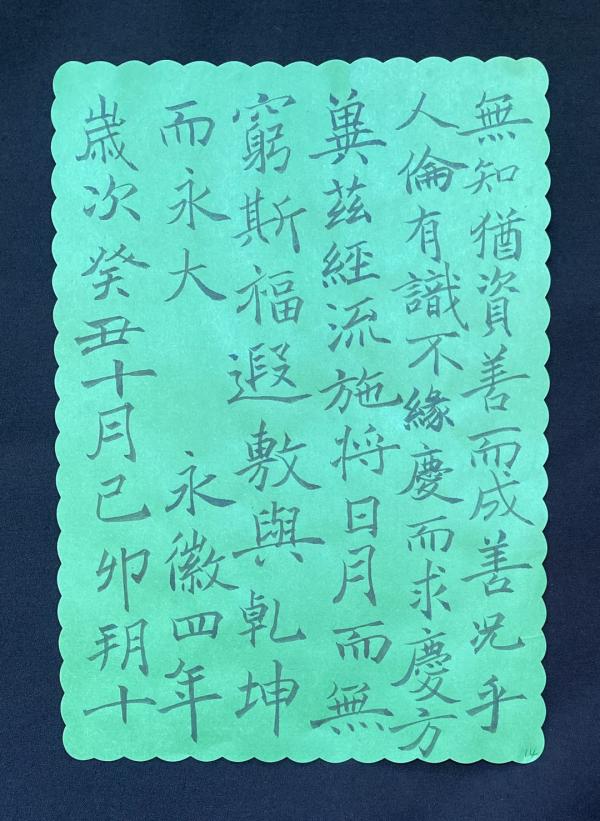 無知猶資善而成善況乎
人倫有識不緣慶而求慶方
兾茲經流施将日月而無
窮斯福遐敷與乹坤
而永大 永徽四年
嵗次癸丑十月己卯朔十
14